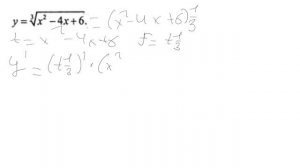 y = ∛(x² − 4x + 6). = (x² − 4x + 6)^(1/3)
t = x² − 4x + 6 F = t^(1/3)
y' = (t^(1/3))' · (x²